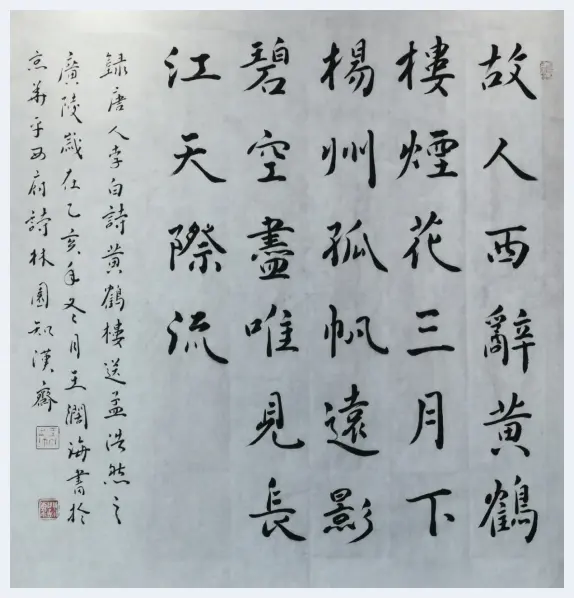 故人西辭黄鶴
樓煙花三月下
楊州孤帆遠影
碧空盡唯見長
江天際流
録唐人李白詩黄鶴樓送孟浩然之
廣陵歲在乙亥年冬月王海書於
京華平西府詩林園知漢齋